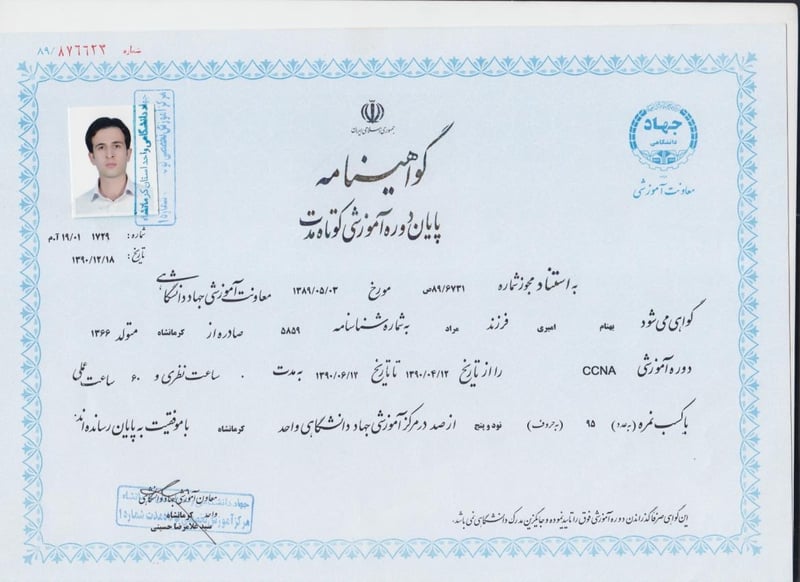 شماره ۸۷۶۶۲۳/۸۹
جمهوری اسلامی ایران
جهاد
دانشگاهی
معاونت آموزشی
جهاد دانشگاهی واحد استان کرمانشاه
گواهینامه
پایان دوره آموزشی کوتاه مدت
شماره: ۱۷۲۹ ۱۹/۰۱ آ.م
تاریخ: ۱۳۹۰/۱۲/۱۸
به استناد مجوز شماره ۸۹/۶۷۳۱ص مورخ ۱۳۸۹/۰۵/۰۳ معاونت آموزشی جهاد دانشگاهی
گواهی می شود بهنام امیری فرزند مراد به شماره شناسنامه ۵۸۵۹ صادره از کرمانشاه متولد ۱۳۶۶
دوره آموزشی CCNA را از تاریخ ۱۳۹۰/۰۴/۱۲ تا تاریخ ۱۳۹۰/۰۶/۱۲ به مدت ۰ ساعت نظری و ۶۰ ساعت عملی
با کسب نمره (به عدد) ۹۵ (به حروف) نود و پنج از صد در مرکز آموزشی جهاد دانشگاهی واحد کرمانشاه با موفقیت به پایان رسانده اند.
معاون آموزشی جهاد دانشگاهی
واحد کرمانشاه
سید غلامرضا حسینی
این گواهی صرفا گذراندن دوره آموزشی فوق را تایید نموده و جایگزین مدرک دانشگاهی نمی باشد.